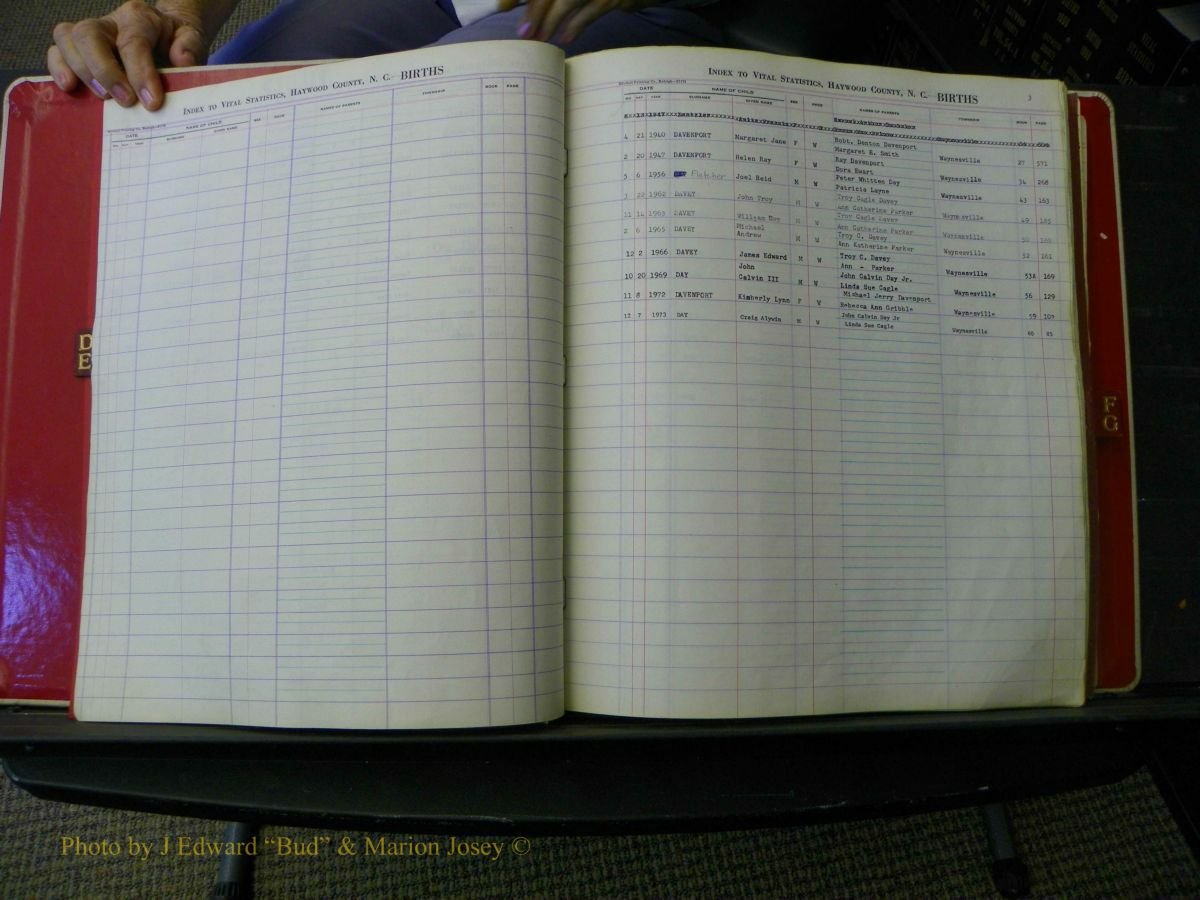 INDEX TO VITAL STATISTICS, HAYWOOD COUNTY, N. C. — BIRTHS
DATE NAME OF CHILD SEX RACE NAMES OF PARENTS TOWNSHIP BOOK PAGE
SURNAME GIVEN NAME
INDEX TO VITAL STATISTICS, HAYWOOD COUNTY, N. C. — BIRTHS 3
DATE NAME OF CHILD SEX RACE NAMES OF PARENTS TOWNSHIP BOOK PAGE
MO. DAY YEAR SURNAME GIVEN NAME
4 21 1940 DAVENPORT Margaret Jane F W Robt. Denton Davenport
Margaret E. Smith Waynesville 27 571
2 20 1947 DAVENPORT Helen Ray F W Ray Davenport
Dora Ewart Waynesville 34 268
5 6 1956 Fletcher Joel Reid M W Peter Whitten Day
Patricia Layne Waynesville 43 163
22 1962 DAVEY John Troy M W Troy Cagle Davey
Ann Catherine Parker Waynesville 49 185
11 14 1963 DAVEY William M W Troy Cagle Davey
Ann Catherine Parker Waynesville 50
2 6 1965 DAVEY Michael
Andrew M W Troy C. Davey
Ann Katherine Parker Waynesville 52 161
12 2 1966 DAVEY James Edward M W Troy C. Davey
Ann - Parker Waynesville 53A 169
10 20 1969 DAY John
Calvin III M W John Calvin Day Jr.
Linda Sue Cagle Waynesville 56 129
11 8 1972 DAVENPORT Kimberly Lynn F W Michael Jerry Davenport
Rebecca Ann Gribble Waynesville 59 107
12 7 1973 DAY Craig Alywin M W John Calvin Day Jr
Linda Sue Cagle Waynesville 60 85
D
E
F
G
Photo by J Edward “Bud” & Marion Josey ©